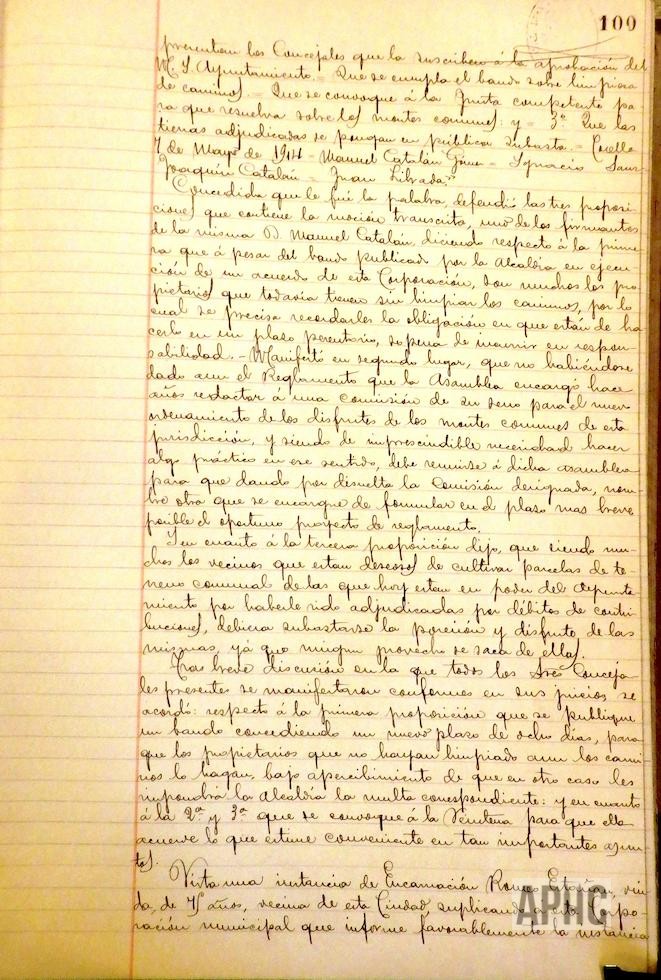 109
presentan los Concejales que la suscriben á la aprobación del
M. Y. Ayuntamiento = Que se cumpla el bando sobre limpieza
de caminos. = Que se convoque á la Junta competente pa-
ra que resuelva sobre los montes comunes: y = 3ª Que las
tierras adjudicadas se pongan en pública subasta. = Corella
7 de Mayo de 1914 = Manuel Catalán = Ignacio Sanz =
Joaquín Catalán = Juan Librada"
Concedida que le fué la palabra, defendió las tres proposi-
ciones que contiene la moción transcrita, uno de los firmantes
de la misma D. Manuel Catalán, diciendo respecto á la prime-
ra que á pesar del bando publicado por la Alcaldía en ejecu-
ción de un acuerdo de esta Corporación, son muchos los pro-
pietarios que todavía tienen sin limpiar los caminos, por lo
cual se precisa recordarles la obligación en que están de ha-
cerlo en un plazo perentorio, so pena de incurrir en respon-
sabilidad. - Manifestó en segundo lugar, que no habiéndose
dado aun el Reglamento que la Asamblea encargó hace
años redactar á una comisión de su seno para el nuevo
ordenamiento de los disfrutes de los montes comunes de esta
jurisdicción, y siendo de imprescindible necesidad hacer
algo práctico en ese sentido, debe reunirse á dicha asamblea
para que dando por disuelta la Comisión designada, nom-
bre otra que se encargue de formular en el plazo mas breve
posible el oportuno proyecto de reglamento.
Y en cuanto á la tercera proposición dijo, que siendo mu-
chos los vecinos que estan deseosos de cultivar parcelas de te-
rreno comunal de las que hoy estan en poder del Ayunta-
miento por haberle sido adjudicadas por débitos de contri-
buciones, debiera subastarse la posesión y disfrute de las
mismas, yá que ningun provecho se saca de ellas.
Tras breve discusión en la que todos los Sres Conceja-
les presentes se manifestaron conformes en sus juicios se
acordó: respecto á la primera proposición que se publique
un bando concediendo un nuevo plazo de ocho dias, para
que los propietarios que no hayan limpiado aun los cami-
nos lo hagan, bajo apercibimiento de que en otro caso les
impondrá la Alcaldía la multa correspondiente: y en cuanto
á la 2ª y 3ª que se convoque á la Veintena para que ella
acuerde lo que estime conveniente en tan importantes asun-
tos.
Vista una instancia de Encarnación Romeo, viu-
da, de años, vecina de esta Ciudad, suplicando a esta Corpo-
ración municipal que informe favorablemente la instancia
APHC